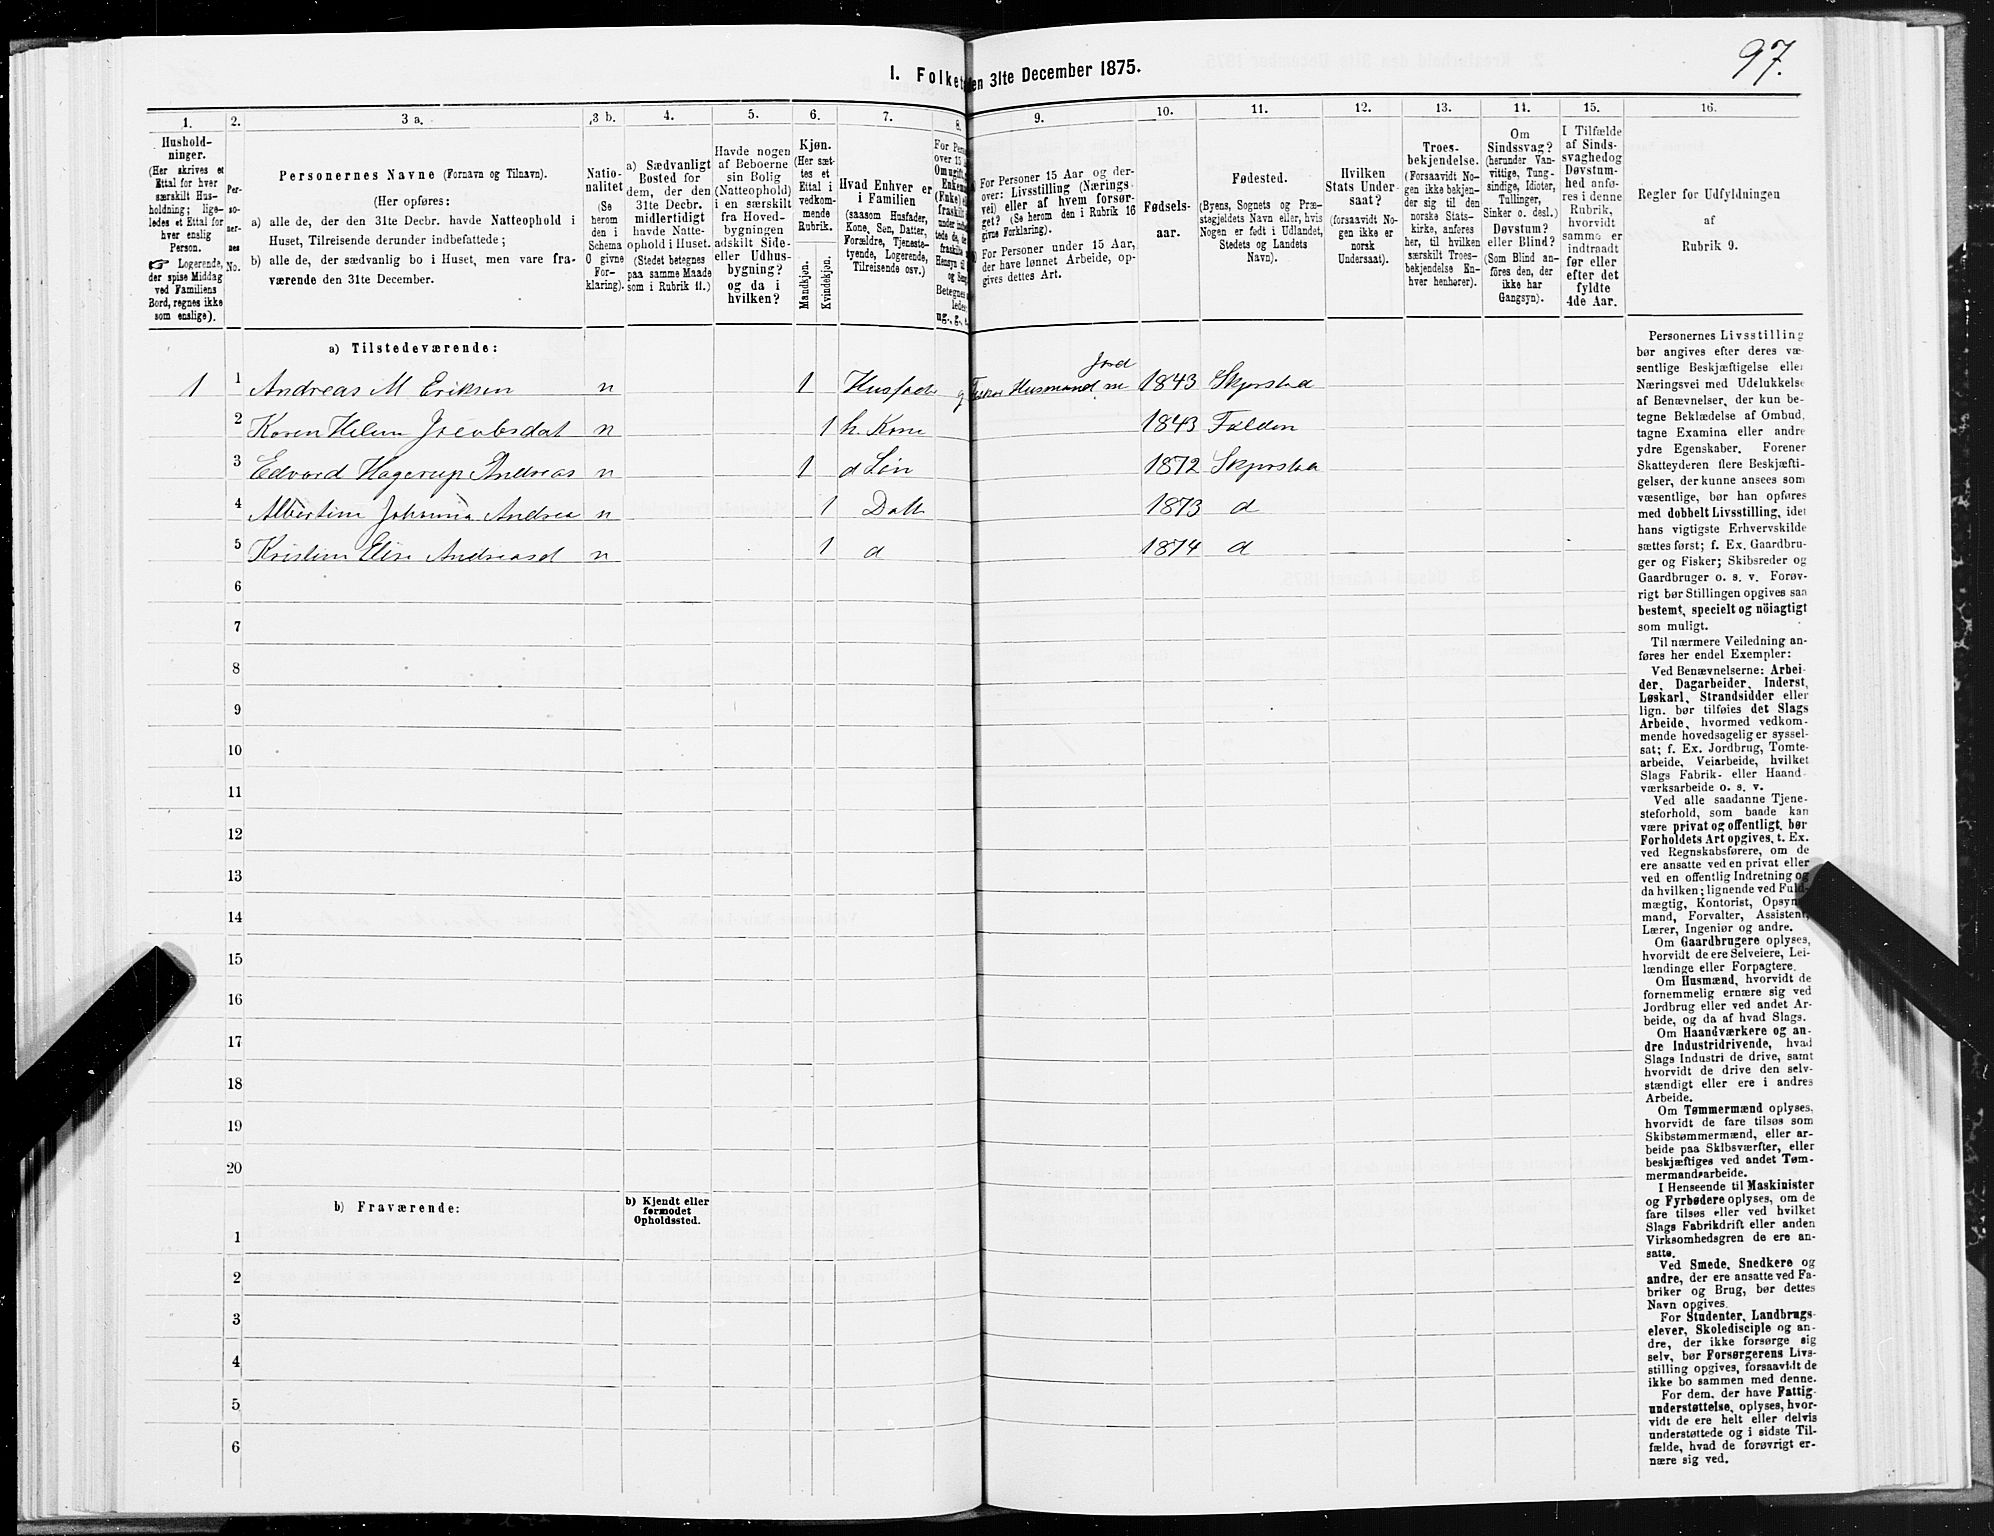 97.
I. Folketæ
en 31te December 1875.
1. 2. 3 a. 3 b. 4. 5. 6. 7. 8. 9. 10. 11. 12. 13. 14. 15. 16.
Hushold-
ninger.
(Her skrives et
Ettal for hver
særskilt Hus-
holdning; lige-
ledes et Ettal for
hver enslig
Person.
☞ Logerende,
der spise Middag
ved Familiens
Bord, regnes ikke
som enslige).
Per-
so-
ner-
nes
No.
Personernes Navne (Fornavn og Tilnavn).
(Her opføres:
a) alle de, der den 31te Decbr. havde Natteophold i
Huset, Tilreisende derunder indbefattede;
b) alle de, der sædvanlig bo i Huset, men vare fra-
værende den 31te December.
Natio-
nalitet
(Se
herom
den i
Schema
O givne
For-
klaring).
a) Sædvanligt
Bosted for
dem, der den
31te Decbr.
midlertidigt
havde Natte-
ophold i Huset.
(Stedet betegnes
paa samme Maade
som i Rubrik 11.)
Havde nogen
af Beboerne
sin Bolig
(Natteophold)
i en særskilt
fra Hoved-
bygningen
adskilt Side-
eller Udhus-
bygning?
og da i
hvilken?
Kjøn.
(Her sæt-
tes et
Ettal i
vedkom-
mende
Rubrik.
Mandkjøn.
Kvindekjøn.
Hvad Enhver er
i Familien
(saasom Husfader,
Kone, Søn, Datter,
Forældre, Tjeneste-
tyende, Logerende,
Tilreisende osv.)
For Pers
over 15 a
Om ugift,
Enkem
(Enke) el
fraskilt
under
tede de,
fraskilt
Hensyn til
og Sen
Betegnes
ledes
ug., g., e.
For Personer 15 Aar og der-
over: Livsstilling (Nærings-
vei) eller af hvem forsør-
get? (Se herom den i Rubrik 16
givne Forklaring).
For Personer under 15 Aar,
der have lønnet Arbeide, op-
gives dettes Art.
Fødsels-
aar.
Fødested.
(Byens, Sognets og Præ-
stegjeldets Navn eller, hvis
Nogen er født i Udlandet,
Stedets og Landets
Navn).
Hvilken
Stats Under-
saat?
(forsaavidt No-
gen ikke er
norsk
Undersaat).
Troes-
bekjendelse.
(Forsaavidt No-
gen ikke bekjen-
der sig til den
norske Stats-
kirke, anføres
her, til hvilken
særskilt Troes-
bekjendelse En-
hver henhører).
Om
Sindssvag?
(herunder Van-
vittige, Tung-
sindige, Idioter,
Tullinger,
Sinker o. desl.)
Døvstum?
eller Blind?
(Som Blind an-
føres den, der
ikke har
Gangsyn).
I Tilfælde
af Sinds-
svaghed og
Døvstum-
hed anfø-
res i denne
Rubrik,
hvorvidt
samme er
indtraadt
før eller
efter det
fyldte
4de Aar.
Regler for Udfyldningen
af
Rubrik 9.
a) Tilstedeværende:
Jord
1 1 Andreas M Eriksen n 1 Husfad g Fisker Husmand m 1843 Skjerstad
2 Karen Helene Jacobsdat n 1 h. Kone 1843 Folden
3 Edvard Hagerup Andreas n 1 d Søn 1872 Skjerstad
4 Albertine Johanna Andrea n 1 Datt 1873 d
5 Kristine Elise Andreasd n 1 d 1874 d
6
7
8
9
10
11
12
13
14
15
16
17
18
19
20
b) Fraværende:
b) Kjendt eller
formodet
Opholdssted.
1
2
3
4
5
6
Personernes Livsstilling
bør angives efter deres væ-
sentlige Beskjæftigelse eller
Næringsvei med Udelukkelse
af Benævnelser, der kun be-
tegne Beklædelse af Ombud,
tagne Examina eller andre
ydre Egenskaber. Forener
Skatteyderen flere Beskjæfti-
gelser, der kunne ansees som
væsentlige, bør han opføres
med dobbelt Livsstilling, idet
hans vigtigste Erhvervskilde
sættes først; f. Ex. Gaardbru-
ger og Fisker; Skibsreder og
Gaardbruger o. s. v. Forøv-
rigt bør Stillingen opgives saa
bestemt, specielt og nöiagtigt
som muligt.
Til nærmere Veiledning an-
føres her endel Exempler:
Ved Benævnelserne: Arbei-
der, Dagarbeider, Inderst,
Løskarl, Strandsidder eller
lign. bør tilføies det Slags
Arbeide, hvormed vedkom-
mende hovedsagelig er syssel-
sat; f. Ex. Jordbrug, Tomte-
arbeide, Veiarbeide, hvilket
Slags Fabrik- eller Haand-
værksarbeide o. s. v.
Ved alle saadanne Tjene-
steforhold, som baade kan
være privat og offentligt, bør
Forholdets Art opgives, t. Ex.
ved Regnskabsførere, om de
ere ansatte ved en privat eller
ved en offentlig Indretning og
da hvilken; lignende ved Fuld-
mægtig, Kontorist, Opsyns-
mand, Forvalter, Assistent,
Lærer, Ingeniør og andre.
Om Gaardbrugere oplyses,
hvorvidt de ere Selveiere, Lei-
lændinge eller Forpagtere.
Om Husmænd, hvorvidt de
fornemmelig ernære sig ved
Jordbrug eller ved andet Ar-
beide, og da af hvad Slags.
Om Haandværkere og an-
dre Industridrivende, hvad
Slags Industri de drive, samt
hvorvidt de drive den selv-
stændigt eller ere i andres
Arbeide.
Om Tømmermænd oplyses,
hvorvidt de fare tilsøs som
Skibstømmermænd, eller ar-
beide paa Skibsværfter, eller
beskjæftiges ved andet Tøm-
mermandsarbeide.
I Henseende til Maskinister
og Fyrbødere oplyses, om de
fare tilsøs eller ved hvilket
Slags Fabrikdrift eller anden
Virksomhedsgren de ere an-
satte.
Ved Smede, Snedkere og
andre, der ere ansatte ved Fa-
briker og Brug, bør dettes
Navn opgives.
For Studenter, Landbrugs-
elever, Skoledisciple og an-
dre, der ikke forsørge sig
selv, bør Forsørgerens Livs-
stilling opgives, forsaavidt de
ikke bo sammen med denne.
For dem, der have Fattig-
understøttelse, oplyses, hvor-
vidt de ere helt eller delvis
understøttede og i sidste Til-
fælde, hvad de forøvrigt er-
nære sig ved.